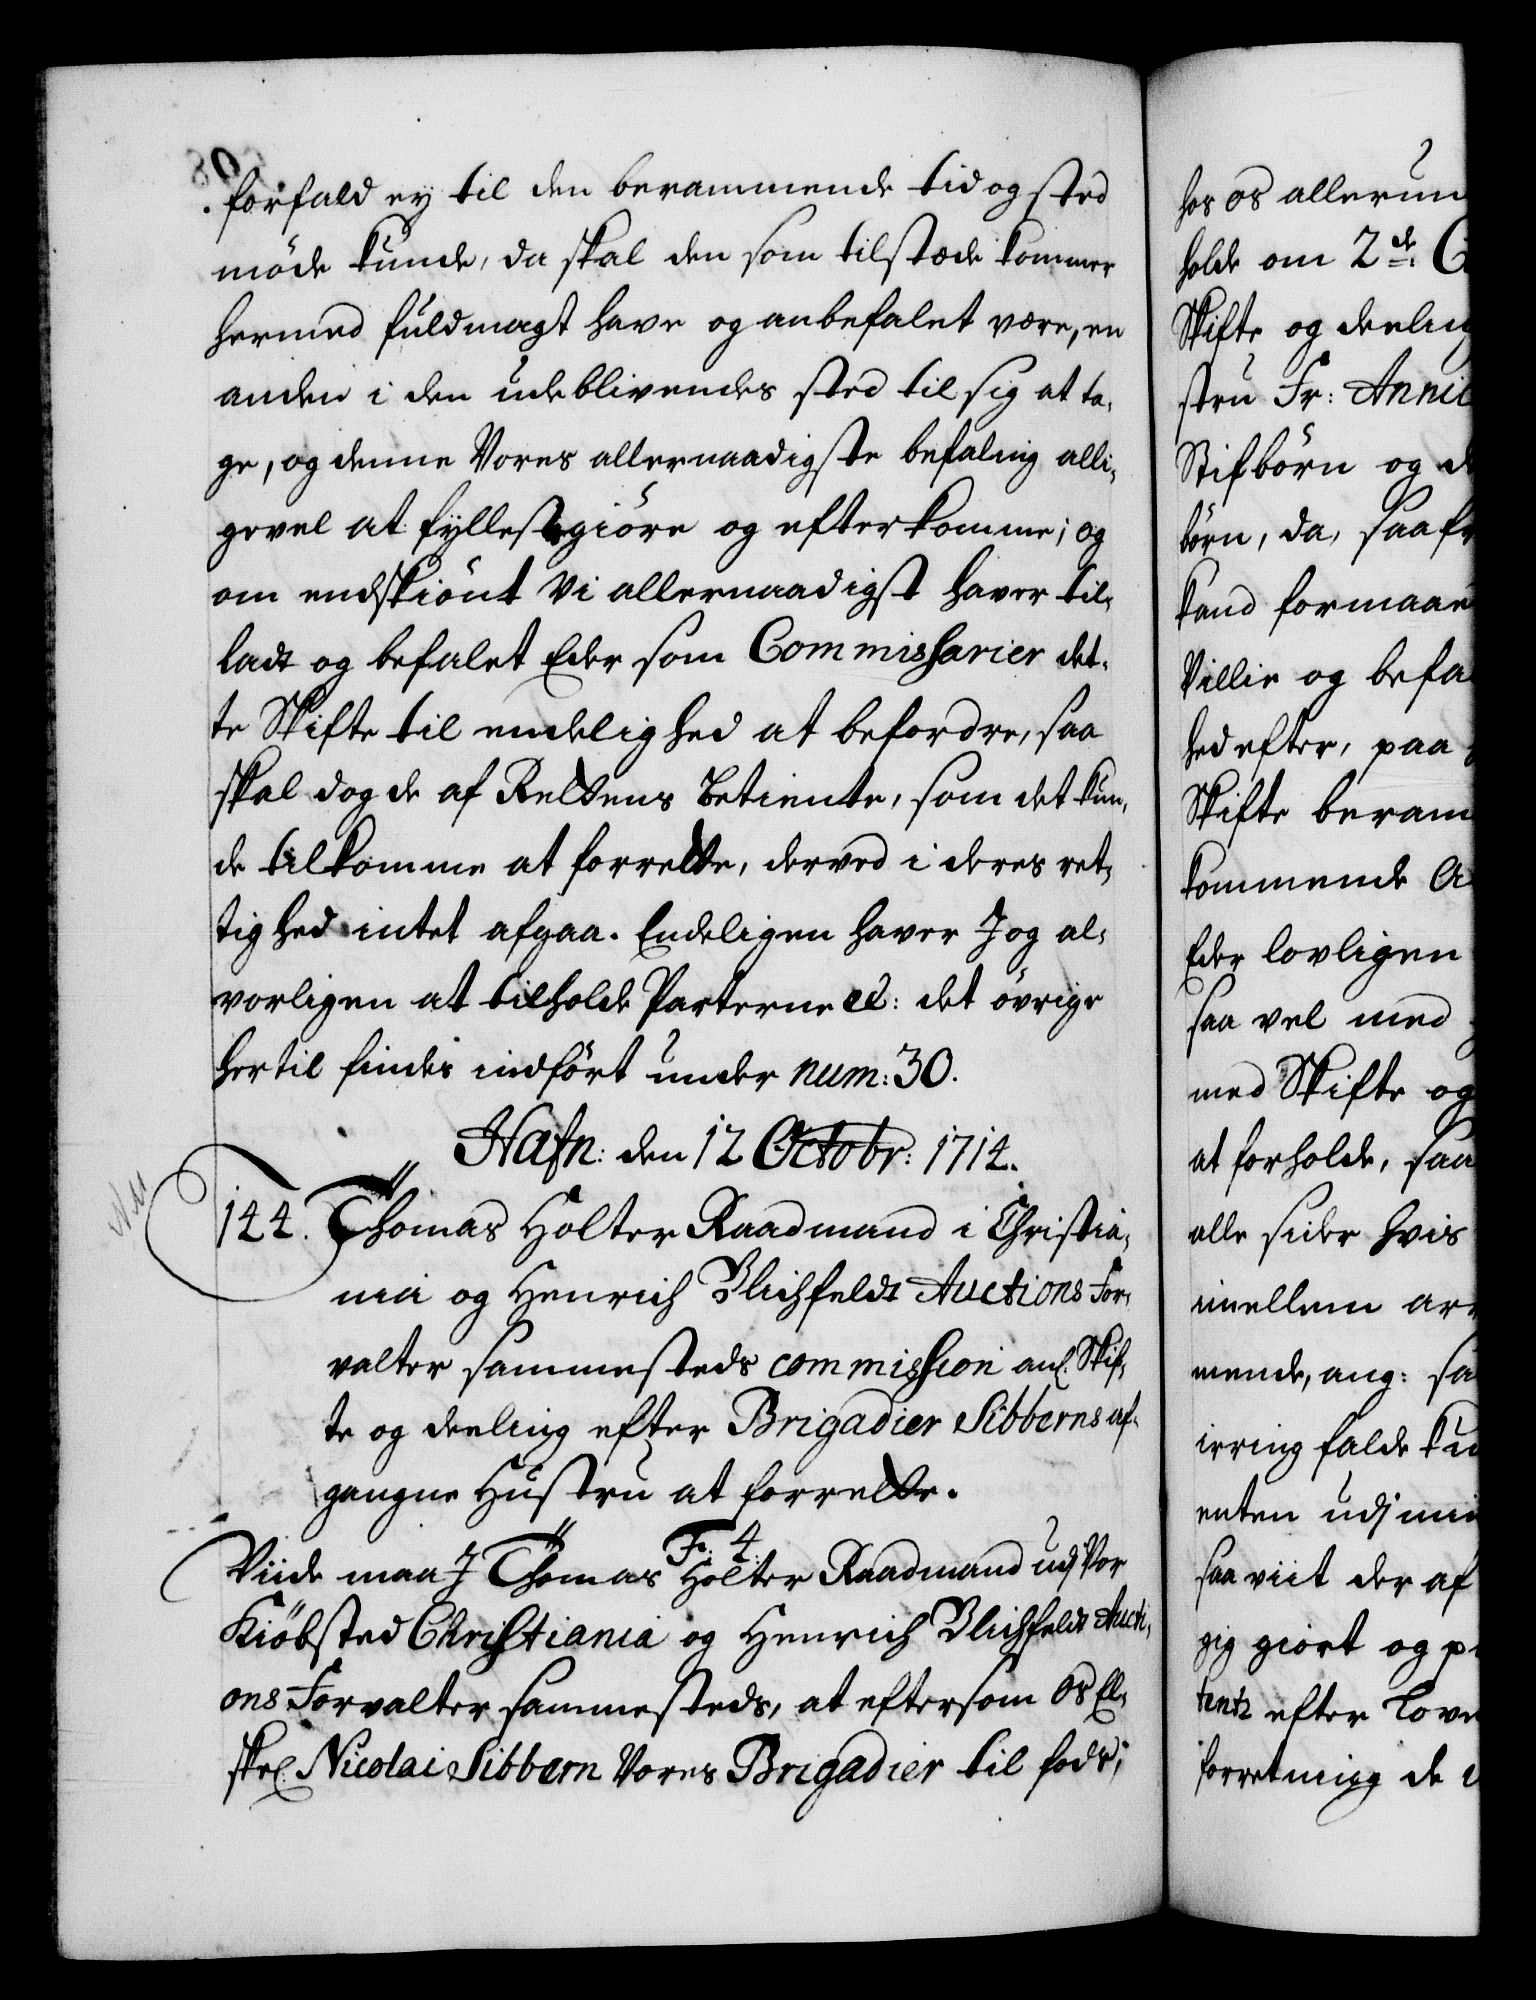 forfald ey til den berammende tid og sted
møde kunde, da skal den som tilstæde kommer
hermed fuldmagt have og anbefalet være, en
anden i den udeblivendes sted til sig at ta,
ge, og denne Vores allernaadigste befaling alli,
gevel at fyllestgiöre og efterkomme; og
om endskiönt Vi allernaadigst haver til,
ladt og befalet Eder som Commissarier det,
te Skifte til endelighed at befordre, saa
skal dog de af Rettens Betiente, som det kun,
de tilkomme at forrette, derved i deres ret,
tighed intet afgaa. Endeligen haver J og al,
vorligen at tilholde Parterne ec: det övrige
hertil findes indfört under num: 30.
Hafn: den 12 Octobr: 1714.
144. Thomas Holter Raadmand i Christia,
nia og Henrich Blichfeldt Auctions For,
valter sammesteds commission anl. Skif,
te og deeling efter Brigadier Sibberns af,
gangne Hustru at forrette.
Fr. 4.
Viide maa J Thomas Holter Raadmand udj Vor
Kiöbsted Christiania og Henrich Blichfeldt Aucti,
ons Forvalter sammesteds, at eftersom Os El,
skel. Nicolai Sibbern Vores Brigadier til fods,
hos os allerun
holde om 2de
Skifte og deeling
stru Fr: Annic
Stifbörn og d
börn, da, saafr
kand formaae
Villie og befa
hed efter, paa
Skifte beram
kommende A
Eder lovligen
saa vel med
med Skifte og
at forholde, saa
alle sider hvis
imellem ar
mende, ang: sa
irring falde ku
enten udj min
saa viit der af
gig giort og p
tentz efter Lov
forretning de